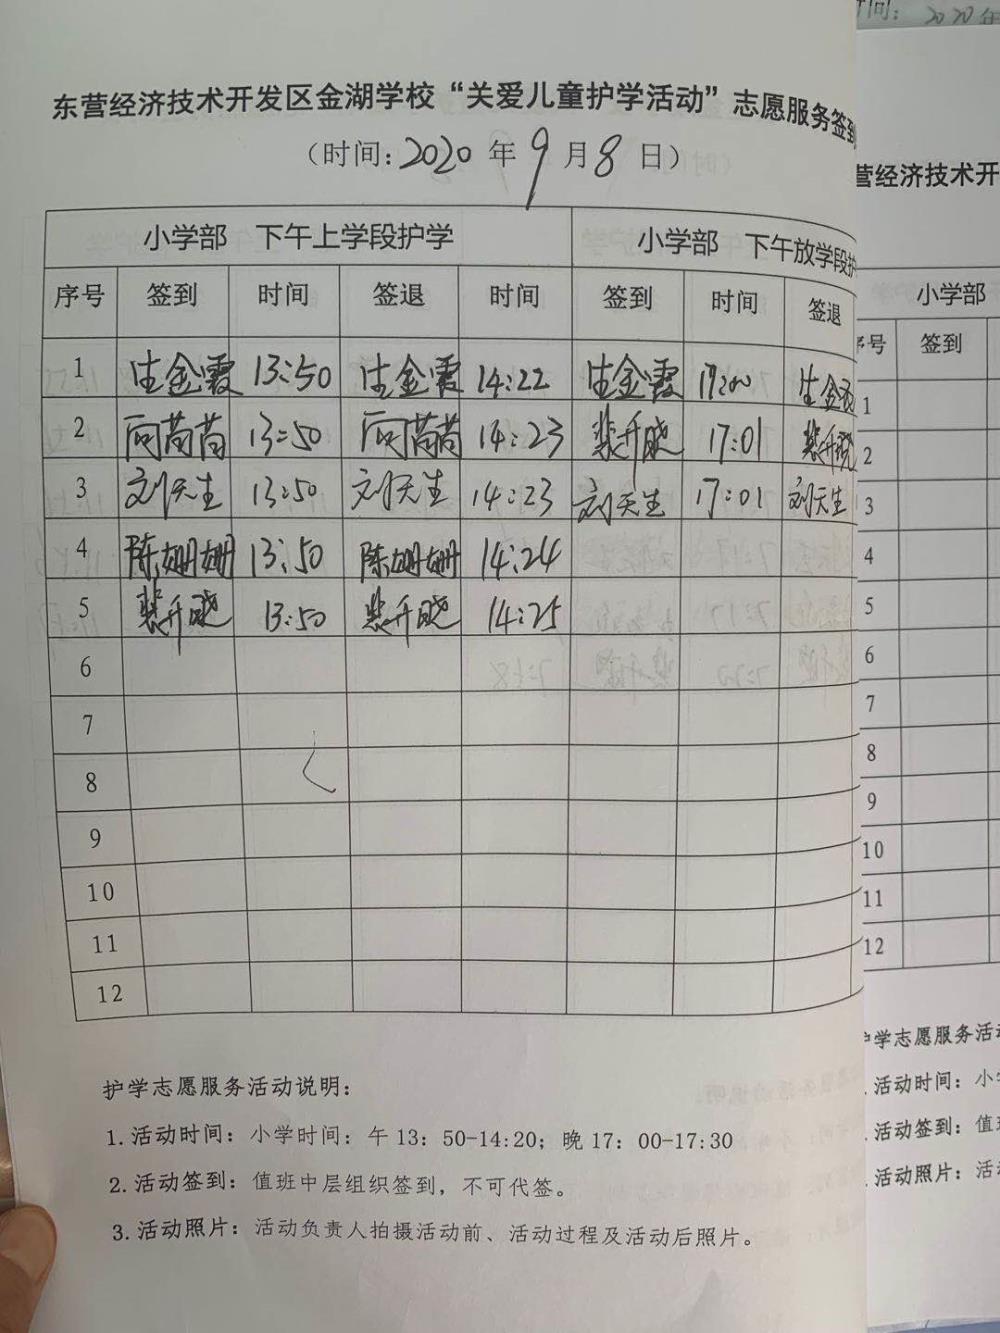 东营经济技术开发区金湖学校“关爱儿童护学活动”志愿服务签到
（时间：2020 年 9 月 8 日）
小学部 下午上学段护学 小学部 下午放学段护
序号 签到 时间 签退 时间 签到 时间 签退
1 生金霞 13:50 生金霞 14:22 生金霞 17:00 生金霞
2 茼茼 13:50 茼茼 14:23 裴升晓 17:01 裴升晓
3 刘天生 13:50 刘天生 14:23 刘天生 17:01 刘天生
4 陈姗姗 13:50 陈姗姗 14:24
5 裴升晓 13:50 裴升晓 14:25
6
7
8
9
10
11
12
护学志愿服务活动说明：
1. 活动时间：小学时间：午 13：50-14:20；晚 17：00-17:30
2. 活动签到：值班中层组织签到，不可代签。
3. 活动照片：活动负责人拍摄活动前、活动过程及活动后照片。
时间： 2020年
营经济技术开
小学部
序号 签到
1
2
3
4
5
6
7
8
9
10
11
12
护学志愿服务活
活动时间：小
活动签到：值
活动照片：活